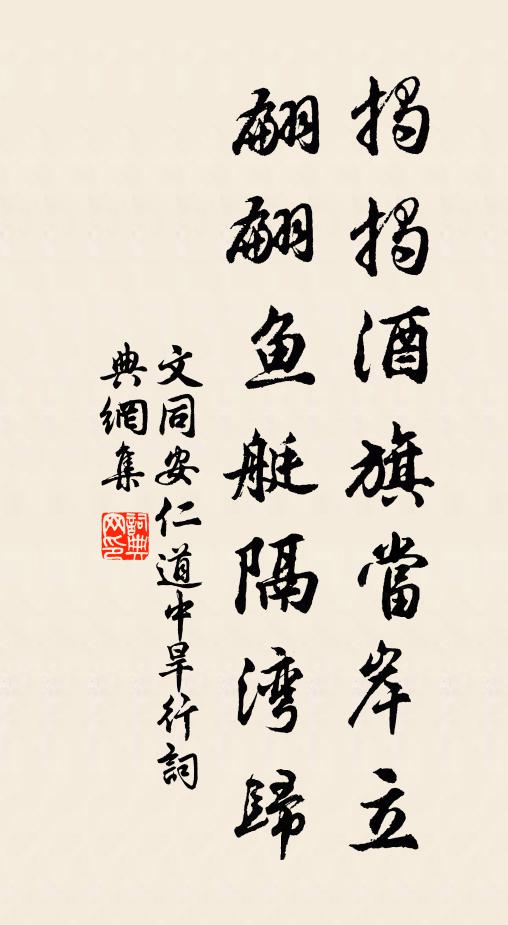 揭揭酒旗當岸立
翩翩鱼艇隔湾歸
文同安仁道中旱行詞
典網集
詞典
网印